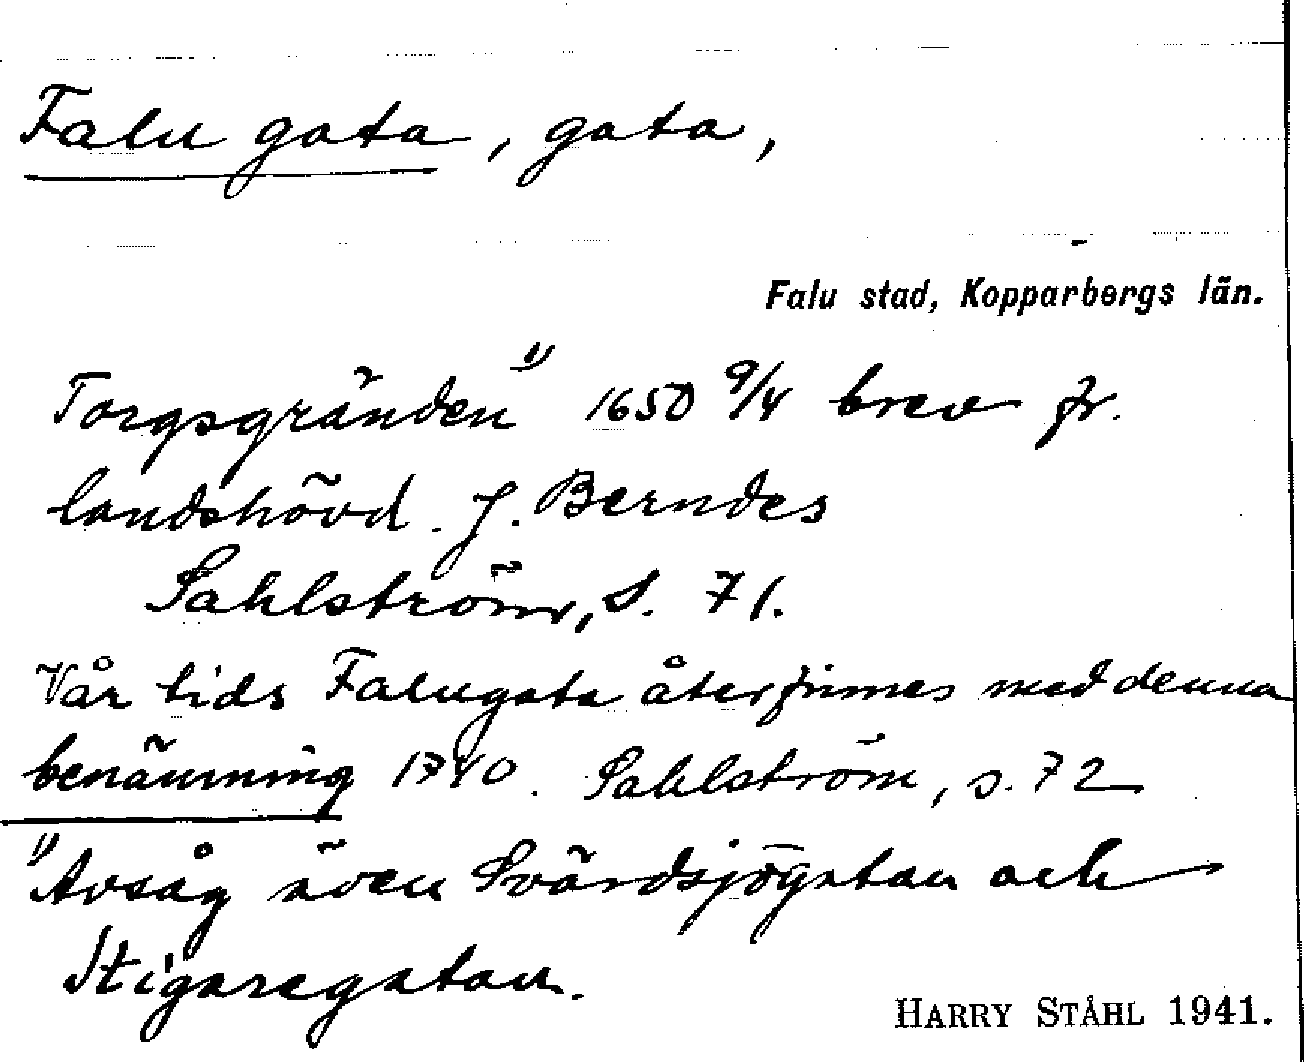 Falu gata, gata,
Falu stad, Kopparbergs län.
Torgsgränden 1) 1650 9/4 brev fr.
landshövd. J. Berndes
Sahlström, s. 71.
Vår tids Falugata återfinnes med denna
benämning 1740. Sahlström, s. 72
1) Avsåg även Svärdsjögatan och
Stigaregatan.
HARRY STÅHL 1941.